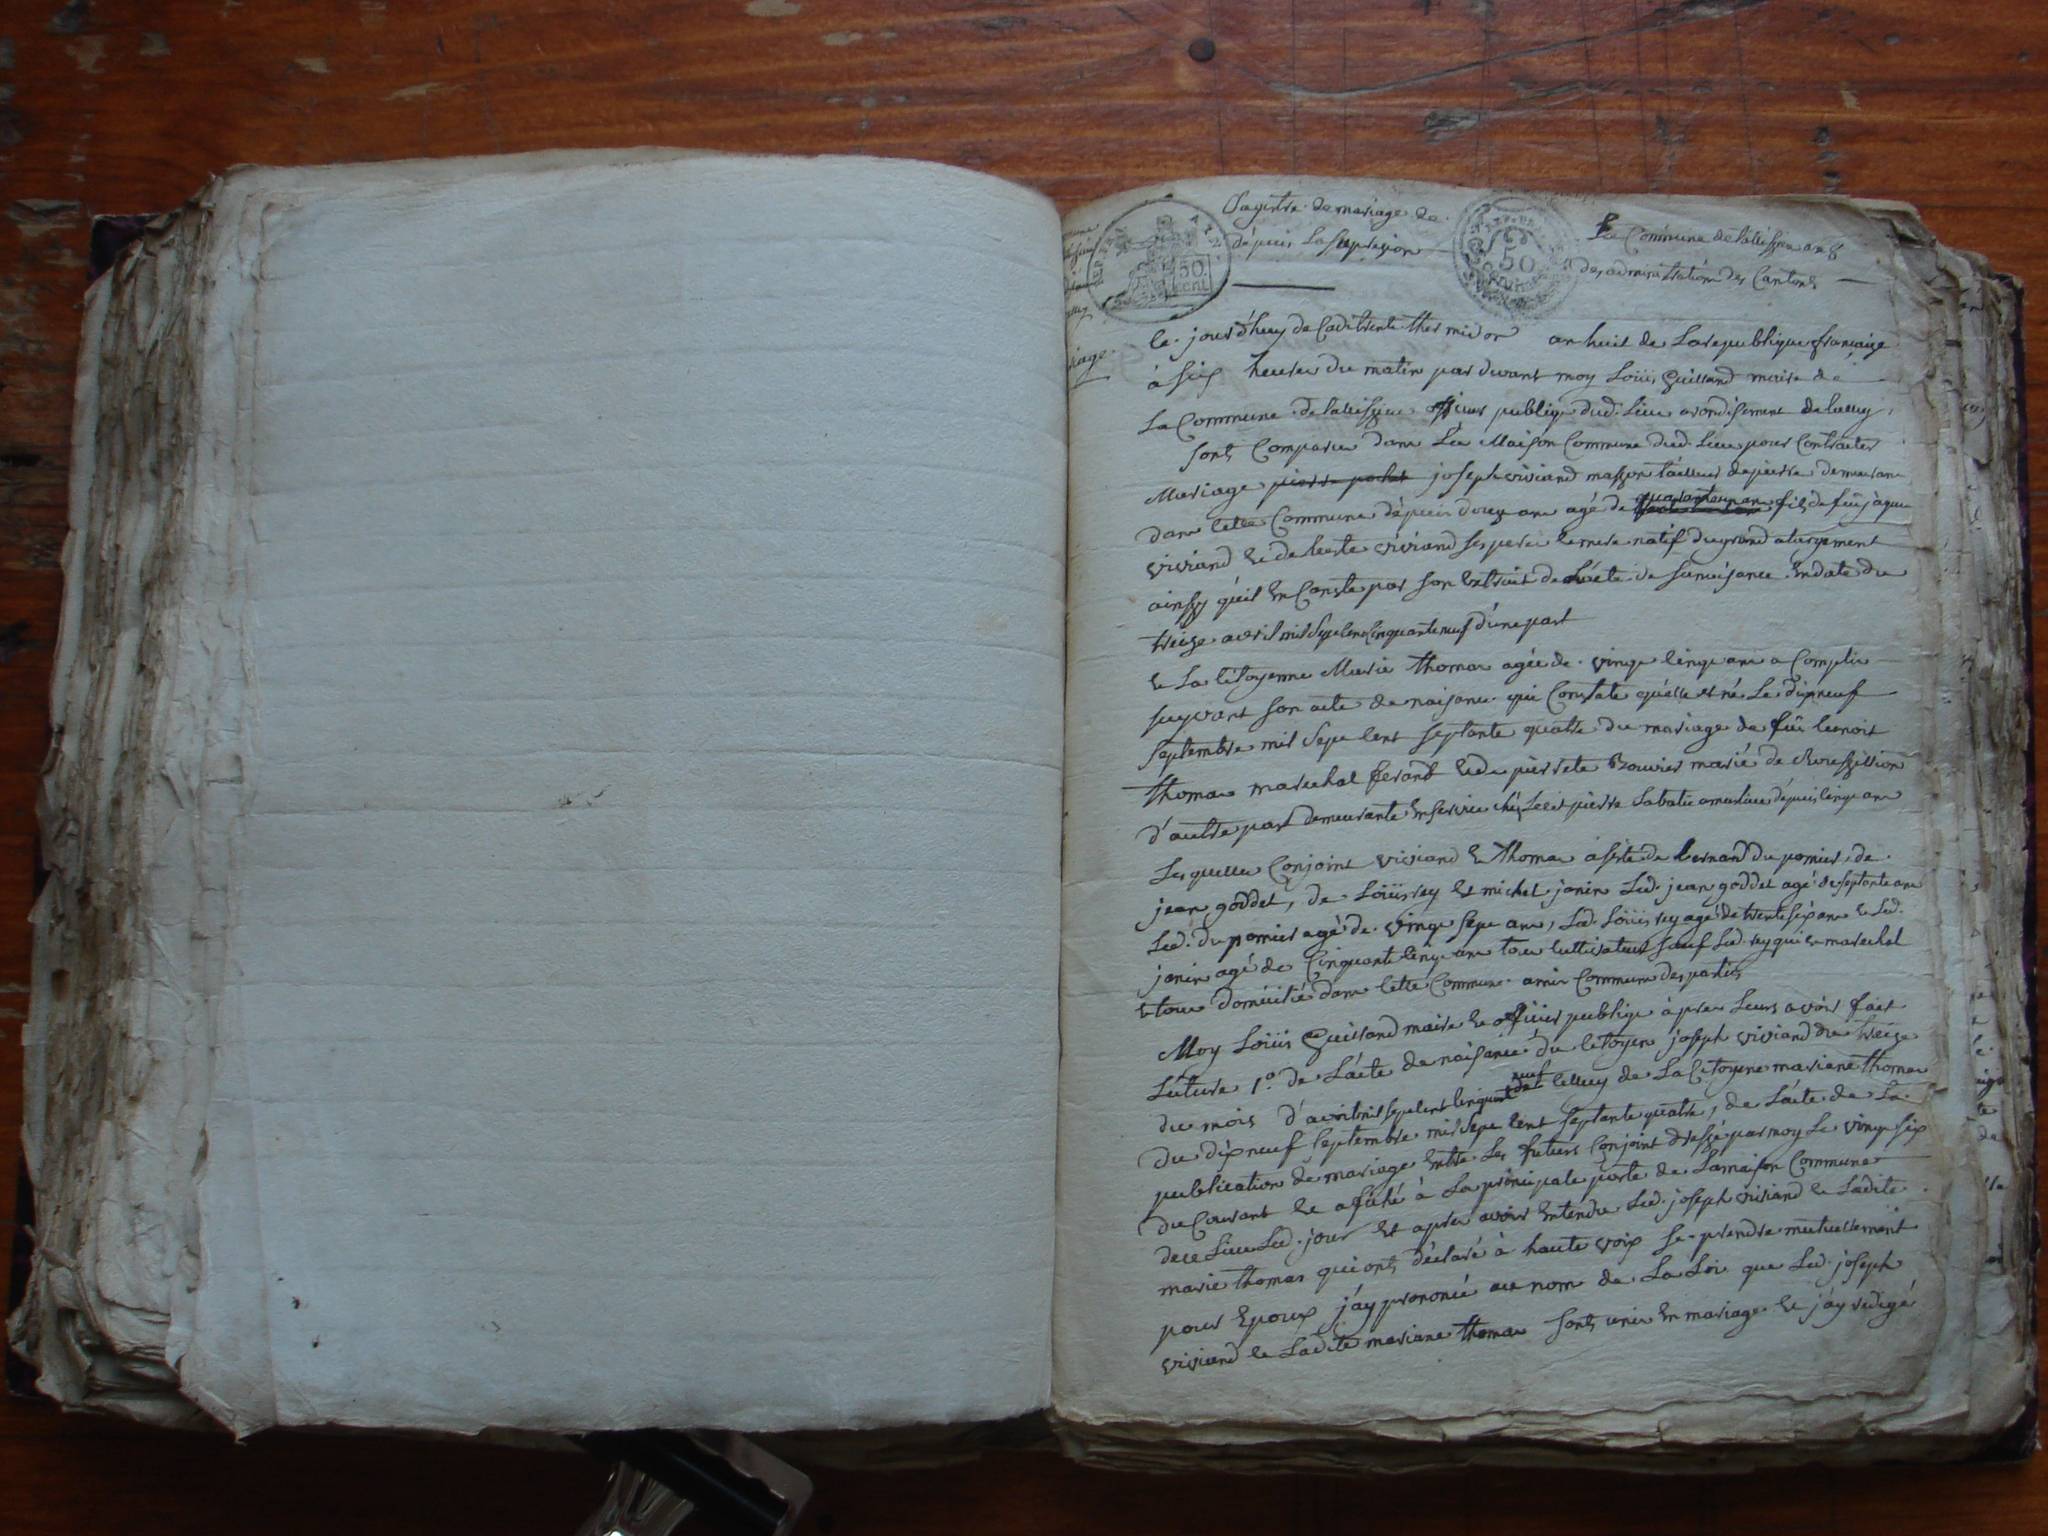 Registre de mariage de
La Commune de lattissieu an 8
depuis la supression
des administration des Cantons
REP. FRA.
50
cent
50
CENTIMES
iage
le jourd'huy decadi trente thermidor an huit de La republique française
à six heures du matin par devant moy Loüis Guilland maire de
La Commune de lattissieu officier publiq dud. Lieu arondisement de belley
sont Comparu dans La Maison Commune dud. Lieu pour Contracter
Mariage pierre pochet joseph viviand masson tailleur de pierre demeurant
dans cette Commune dépuis douze ans agé de quarante un an fils de feû jaque
viviand et de viviand ses pere et mere natif du grand aburgement
ainssy qu'il en Conste par son Extrait de L'acte de sa naisance En date du
treize avril mil sept cent cinquante neuf d'une part
et La Citoyenne Marie Thomas agée de vingt cinq ans a Complis
suyvant son acte de naisance qui Constate qu'elle est né Le dixneuf
septembre mil sept cent septante quatre du mariage de feû benoit
Thomas marechal ferand et de pierrete Bouvier marié de Roussillion
d'autre part demeurante En service chés Le cit pierre Labatie depuis cinq ans
Lesquelles Conjoint viviand et Thomas asisté de bernard du pomier, de
jean goddet, de Loüis rey et michel janin Led. jean goddet agé de septante ans
Led. du pomier agé de vingt sept ans, Led. Loüis rey agé de trente six ans et Led.
janin agé de Cinquante cinq ans tous cultivateurs sauf Led. rey qui est marechal
et tous domicilié dans cette Commune amis Commun des parties
Moy Loüis Guilland maire et officier publiqe après Leurs avoir fait
Lecture 1.° de L'acte de naisance du citoyen joseph viviand du treize
du mois d'avril mil sept cent cinquante neuf celluy de La Citoyene mariane Thomas
du dixneuf septembre mil sept cent septante quatre, de L'acte de La
publication de mariage Entre Les futurs Conjoint dressé par moy Le vingt six
du Courant et afiché à La principale porte de La maison Commune
de ce Lieu Led. jour et apres avoir Entendu Led. joseph viviand et Ladite
marie thomas qui ont déclaré à haute voix se prendre mutuellement
pour Epoux j'ay prononcé au nom de La Loi que Led. joseph
viviand et Ladite mariane Thomas sont unis En mariage et j'ay redigé